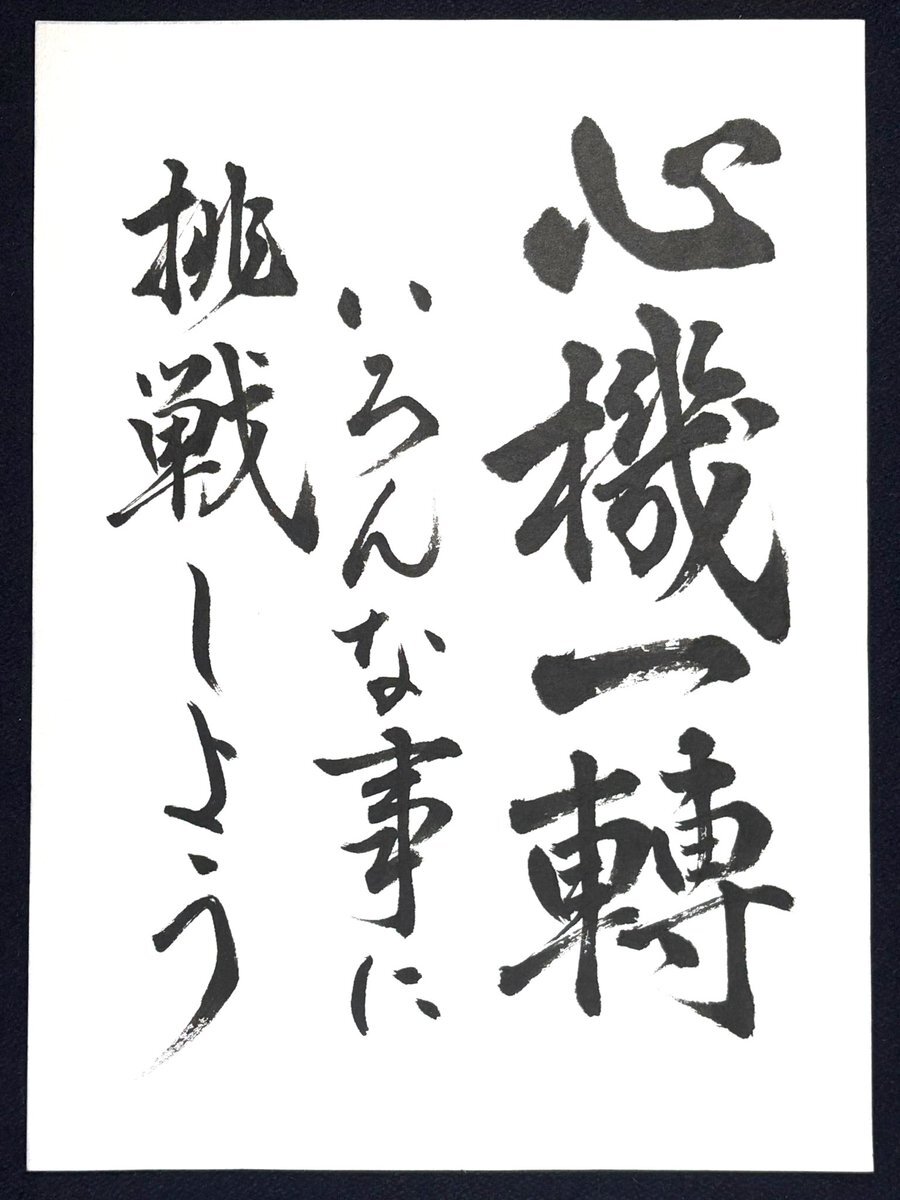 心機一轉
いろんな事に
挑戦しよう